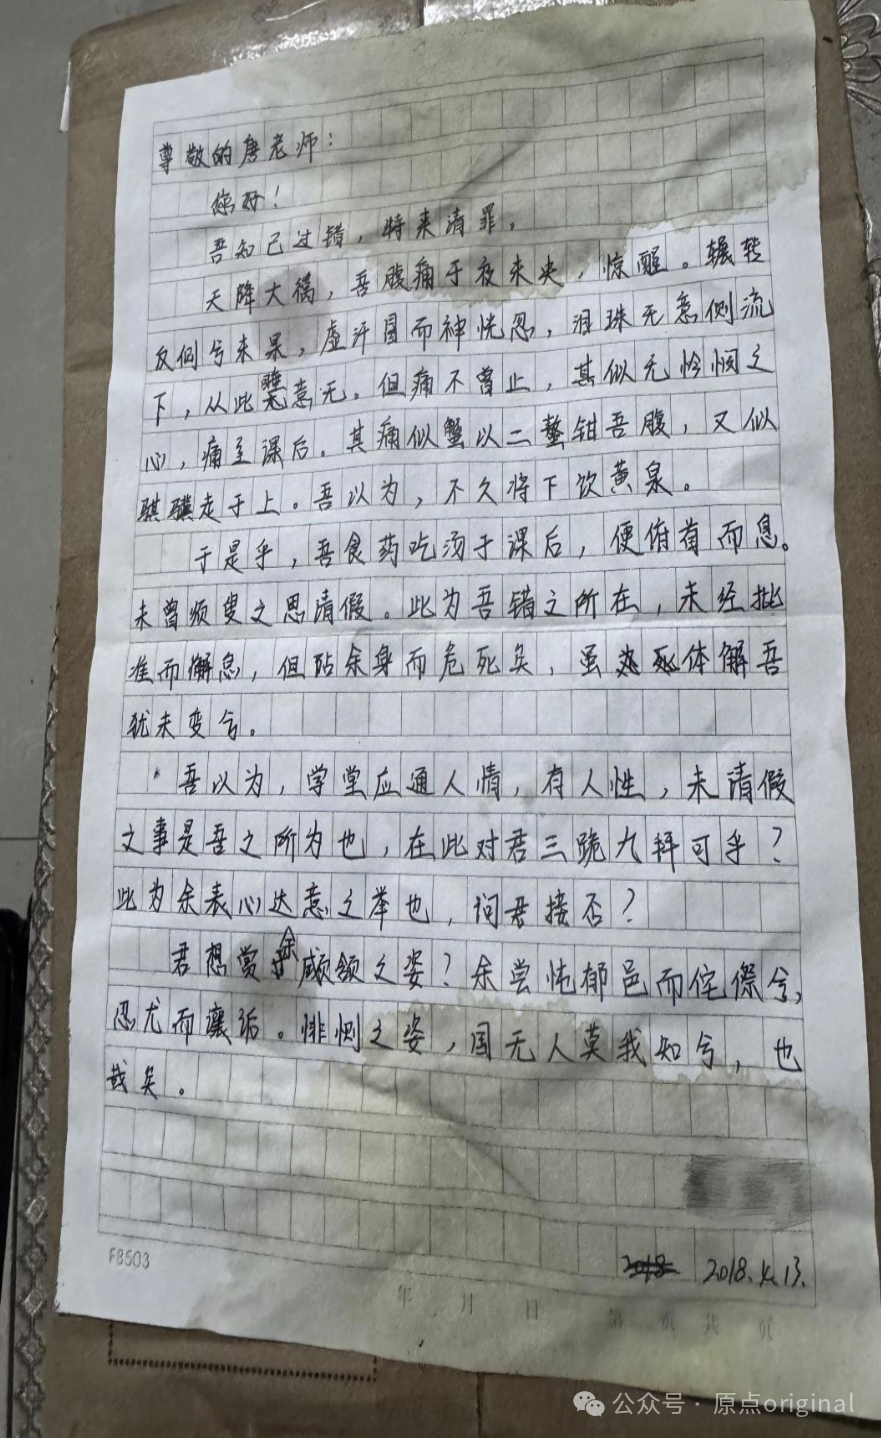 尊敬的唐老师：
您好！
吾知己过错，特来清罪。
天降大祸，吾腹痛于夜未央，惊醒。辗转
反侧兮未果，虚汗冒而神恍忍，泪珠无意侧流
下，从此睡意无。但痛不曾止，其似无怜悯之
心，痛至课后。其痛似蟹以二螯钳吾腹，又似
骐骥走于上。吾以为，不久将下饮黄泉。
于是乎，吾食药吃汤于课后，便俯首而息。
未曾须叟之思清假。此为吾错之所在，未经批
准而懈息，但阽余身而危死矣，虽体解吾
犹未变兮。
吾以为，学堂应通人情，有人性，未清假
之事是吾之所为也，在此对君三跪九拜可乎？
此为余表心达意之举也，问君接否？
君想赏余顑颔之姿？余尝忳郁邑而侘傺兮，
忍尤而攘诟。悱恻之姿，国无人莫我知兮，也
哉矣。
2018.4.13.
F8503
年 月 日 第 页 共 页
公众号·原点original